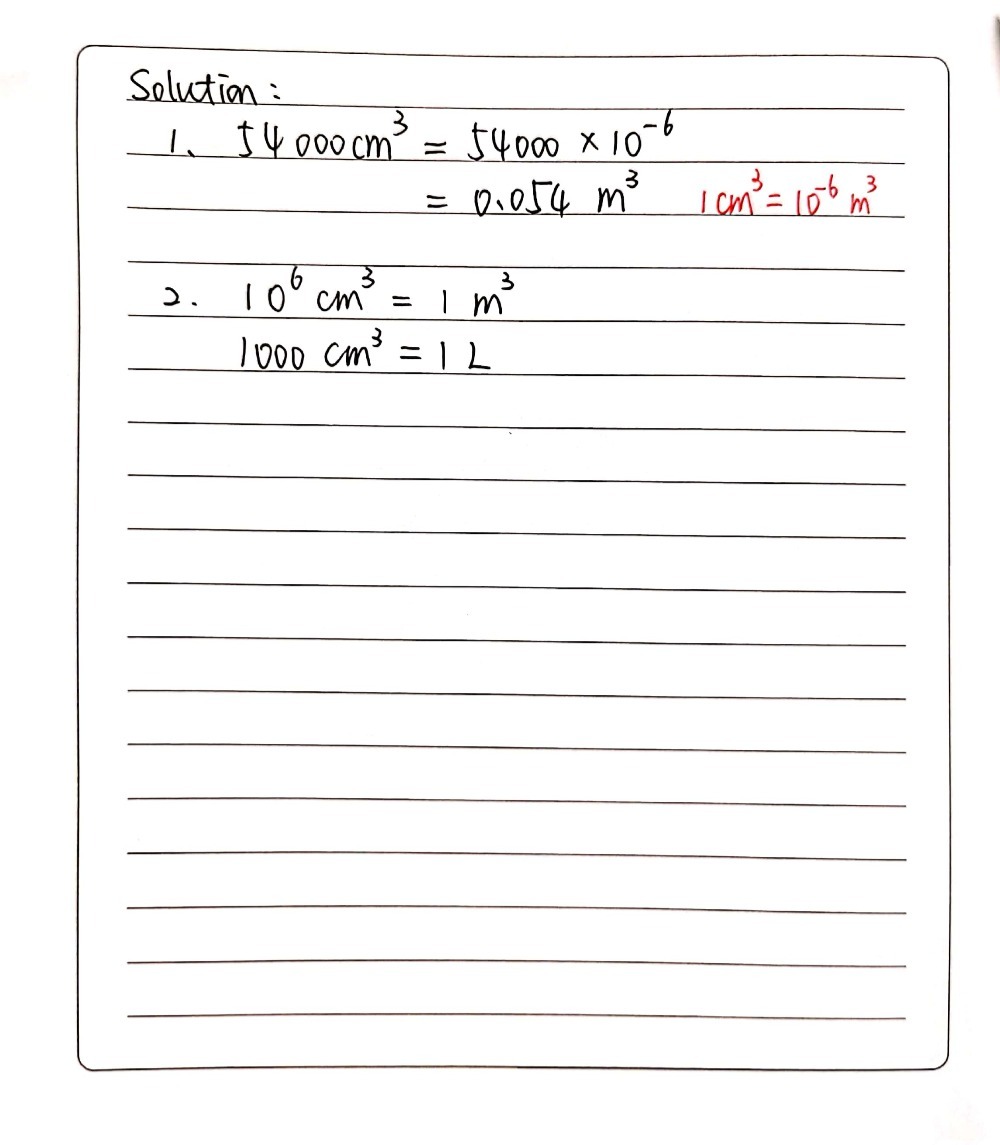 Solution:
1、 54000cm³ = 54000 × 10⁻⁶
= 0.054 m³ 1cm³ = 10⁻⁶ m³
2. 10⁶ cm³ = 1 m³
1000 cm³ = 1 L